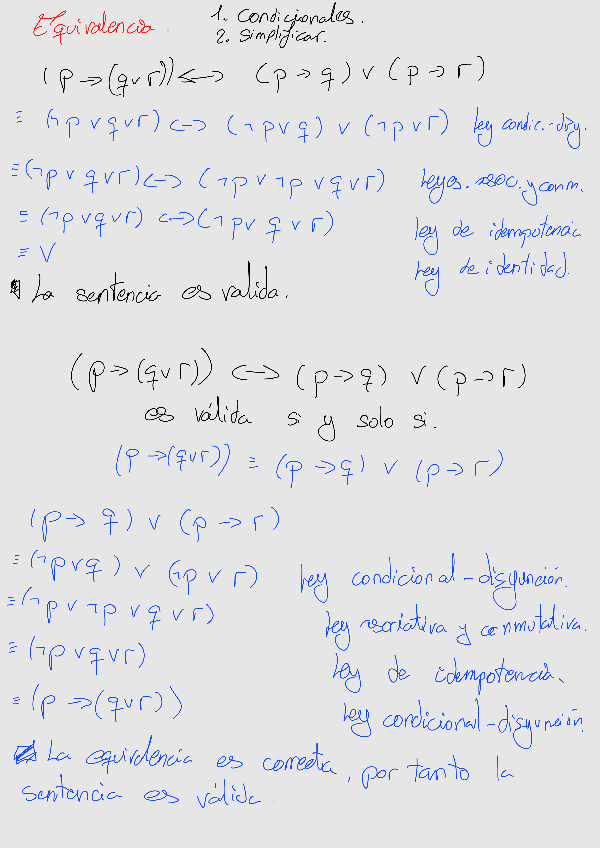 Equivalencia.
1. Condicionales.
2. Simplificar.
(p → (q ∨ r)) ↔ (p → q) ∨ (p → r)
≡ (¬p ∨ q ∨ r) ↔ (¬p ∨ q) ∨ (¬p ∨ r) Ley condic.-disy.
≡ (¬p ∨ q ∨ r) ↔ (¬p ∨ ¬p ∨ q ∨ r) Leyes. asoc. y conm.
≡ (¬p ∨ q ∨ r) ↔ (¬p ∨ q ∨ r) Ley de idempotencia
≡ V Ley de identidad.
La sentencia es valida.
(p → (q ∨ r)) ↔ (p → q) ∨ (p → r)
es válida si y solo si.
(p → (q ∨ r)) ≡ (p → q) ∨ (p → r)
(p → q) ∨ (p → r)
≡ (¬p ∨ q) ∨ (¬p ∨ r) Ley condicional-disyunción.
≡ (¬p ∨ ¬p ∨ q ∨ r) Ley asociativa y conmutativa.
≡ (¬p ∨ q ∨ r) Ley de idempotencia.
≡ (p → (q ∨ r)) Ley condicional-disyunción.
La equivalencia es correcta, por tanto la
sentencia es válida.